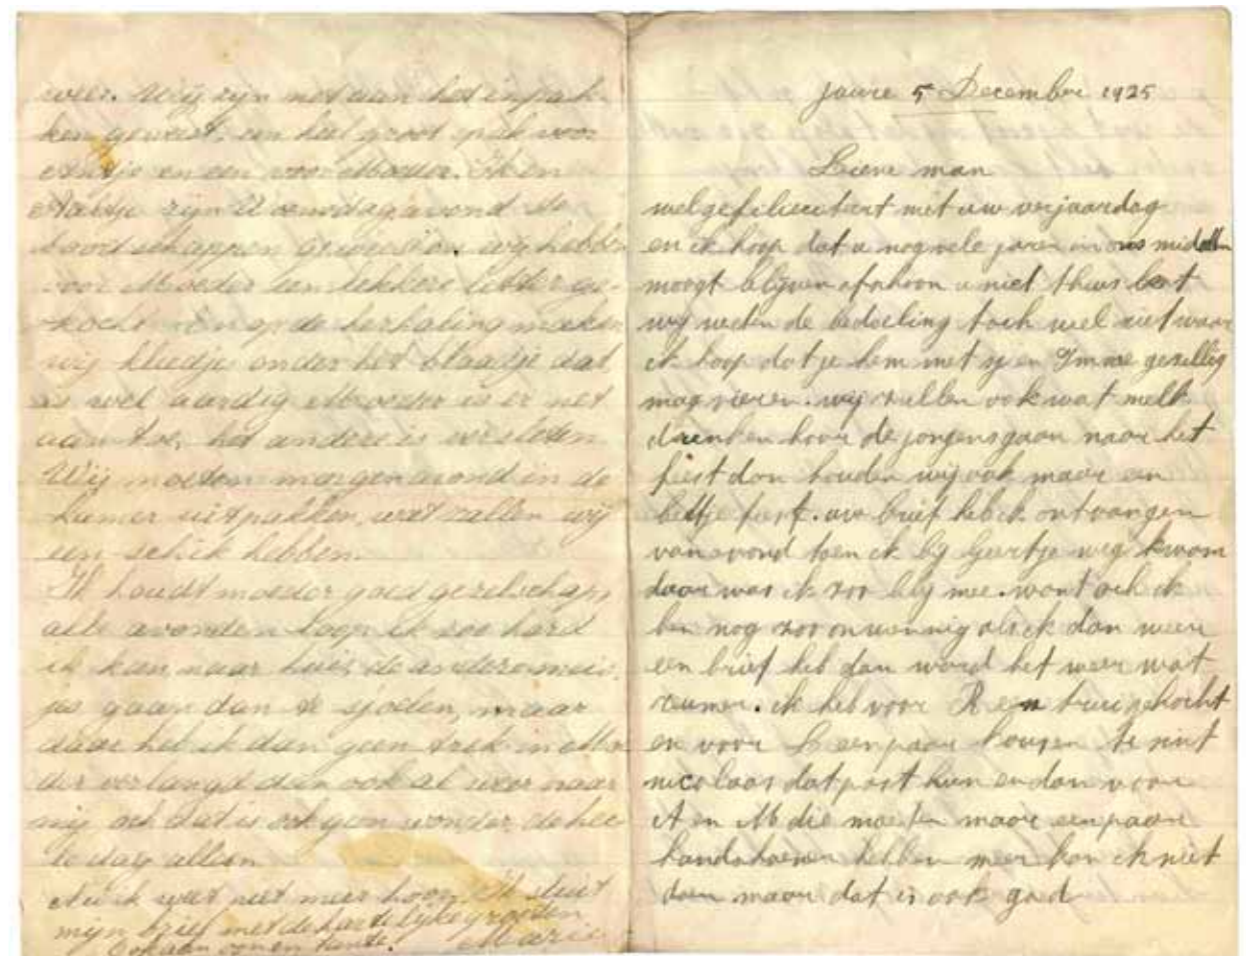 weer. Wij zijn net aan het inpak
ken geweest. een heel groot pak voor
Antje en een voor Moeder. Ik en
Aaltje zijn Woensdagavond de
boodschappen geweest. wij hebben
voor Moeder een lekkere letter ge-
kocht en op de herhaling maken
wij kleedje onder het blaadje dat
is wel aardig Moeder is er net
aan toe, het andere is versleten
Wij moeten morgenavond in de
kamer uitpakken, wat zullen wij
een schik hebben.
Ik houdt moeder goed gezelschap,
alle avonden loop ik zoo hard
ik kan naar huis, de andere meis-
jes gaan dan te spelen, maar
daar heb ik dan geen trek in Moe
der verlangd dan ook al weer naar
mij och dat is ook geen wonder de hee
le dag alleen
Nu ik weet niet meer hoor. Ik sluit
mijn brief met de hartelijke groeten
Ook aan oom en tante. Marie
Joure 5 December 1925
Lieve man
wel gefiliciteert met uw verjaardag
en ik hoop dat u nog vele jaren in ons midden
moogt blijven ofschoon u niet thuis bent
wij weten de bedoeling toch wel niet waar
ik hoop dat je hem met sj en Imme gezellig
mag vieren. wij zullen ook wat melk
drinken hoor de jongens gaan naar het
feest dan houden wij ook maar een
beetje feest. uw brief heb ik ontvangen
van avond toen ik bij Geertje weg kwam
daar was ik zoo blij mee. want och ik
ben nog zoo onwennig als ik dan weer
een brief heb dan word het weer wat
rumer. ik heb voor R een trui gekocht
en voor L een paar kousen te sint
nicolaas dat past hun en dan voor
A en M die moeten maar een paar
handschoenen hebben meer kan ik niet
doen maar dat is ook goed